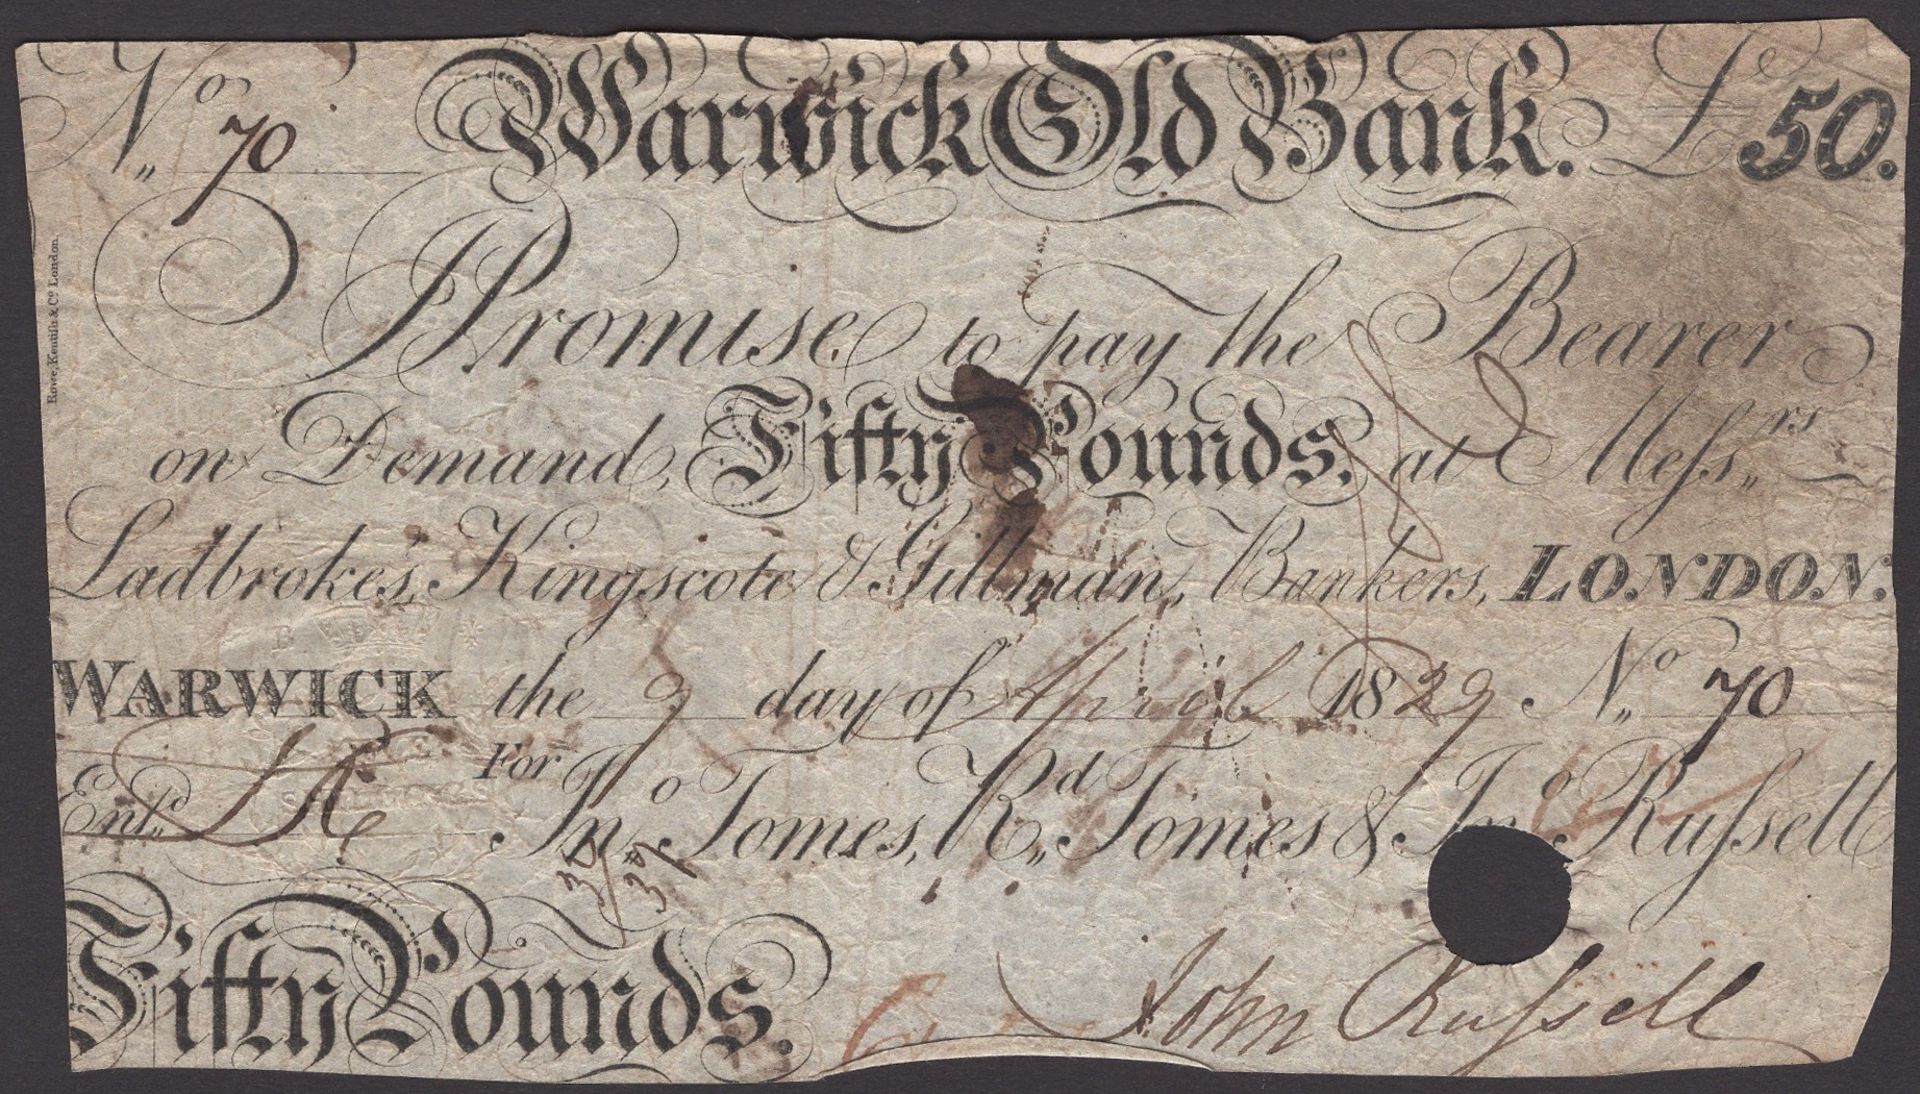 No 70 Warwick Old Bank. £50.
Rowe, Kentish & Co London.
I Promise to pay the Bearer
on Demand, Fifty Pounds. at Messrs
Ladbrokes, Kingscote & Gillman, Bankers, LONDON.
WARWICK the 9 day of April 1829 No 70
For Jno Tomes, Rd Tomes & Jno Russell
Entd
Fifty Pounds.
John Russell